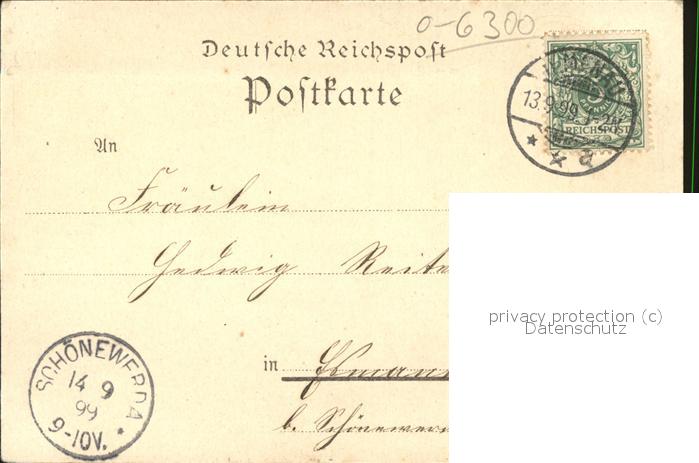 0-6300
Deutsche Reichspost
Postkarte
ILMENAU
13.9.99. 1-2N.
REICHSPOST
An
Fräulein
Hedwig Reite
privacy protection (c)
Datenschutz
in
b. Schönewer
SCHÖNEWERDA
14 9
99
9-10V.